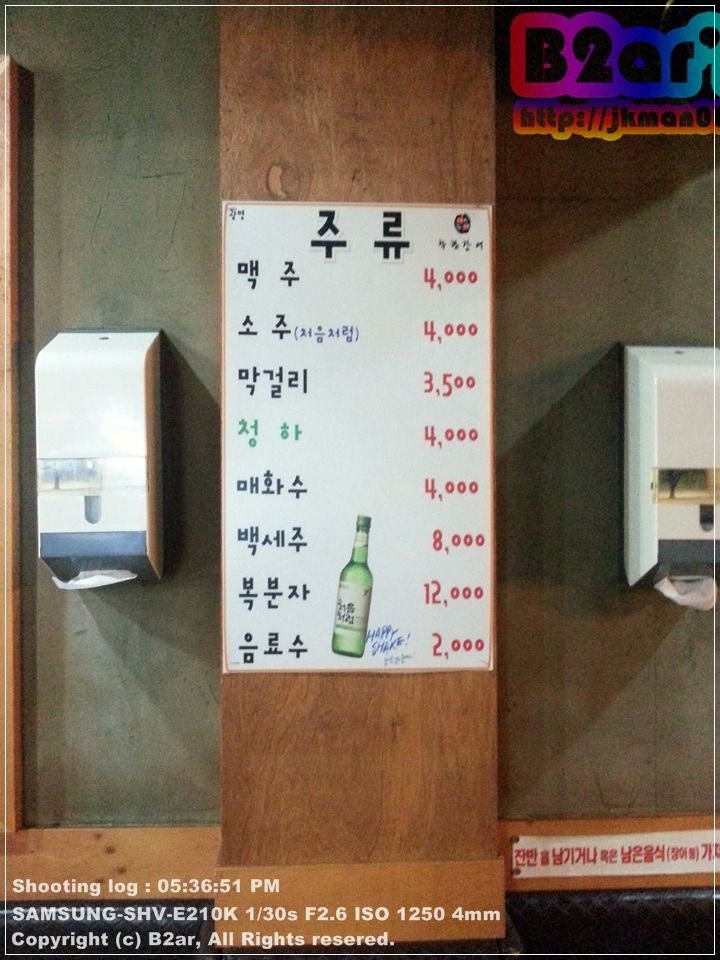 B2ar
http://jkman0
광영
주 류
무한장어
맥 주 4,000
소 주 (처음처럼) 4,000
막걸리 3,500
청 하 4,000
매화수 4,000
백세주 8,000
복분자 12,000
음료수 2,000
처음
처럼
HAPPY
SHAKE!
잔반을 남기거나 혹은 남은음식(장어 등) 가져
Shooting log : 05:36:51 PM
SAMSUNG-SHV-E210K 1/30s F2.6 ISO 1250 4mm
Copyright (c) B2ar, All Rights resered.